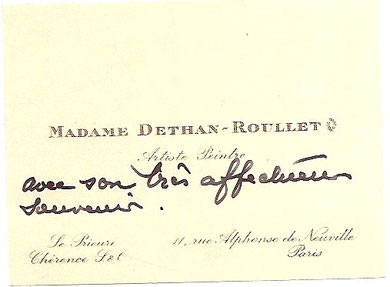 MADAME DETHAN-ROULLET
Artiste Peintre
avec son très affectueux
souvenir.
Le Prieure 11, rue Alphonse de Neuville
Chérence S&O Paris